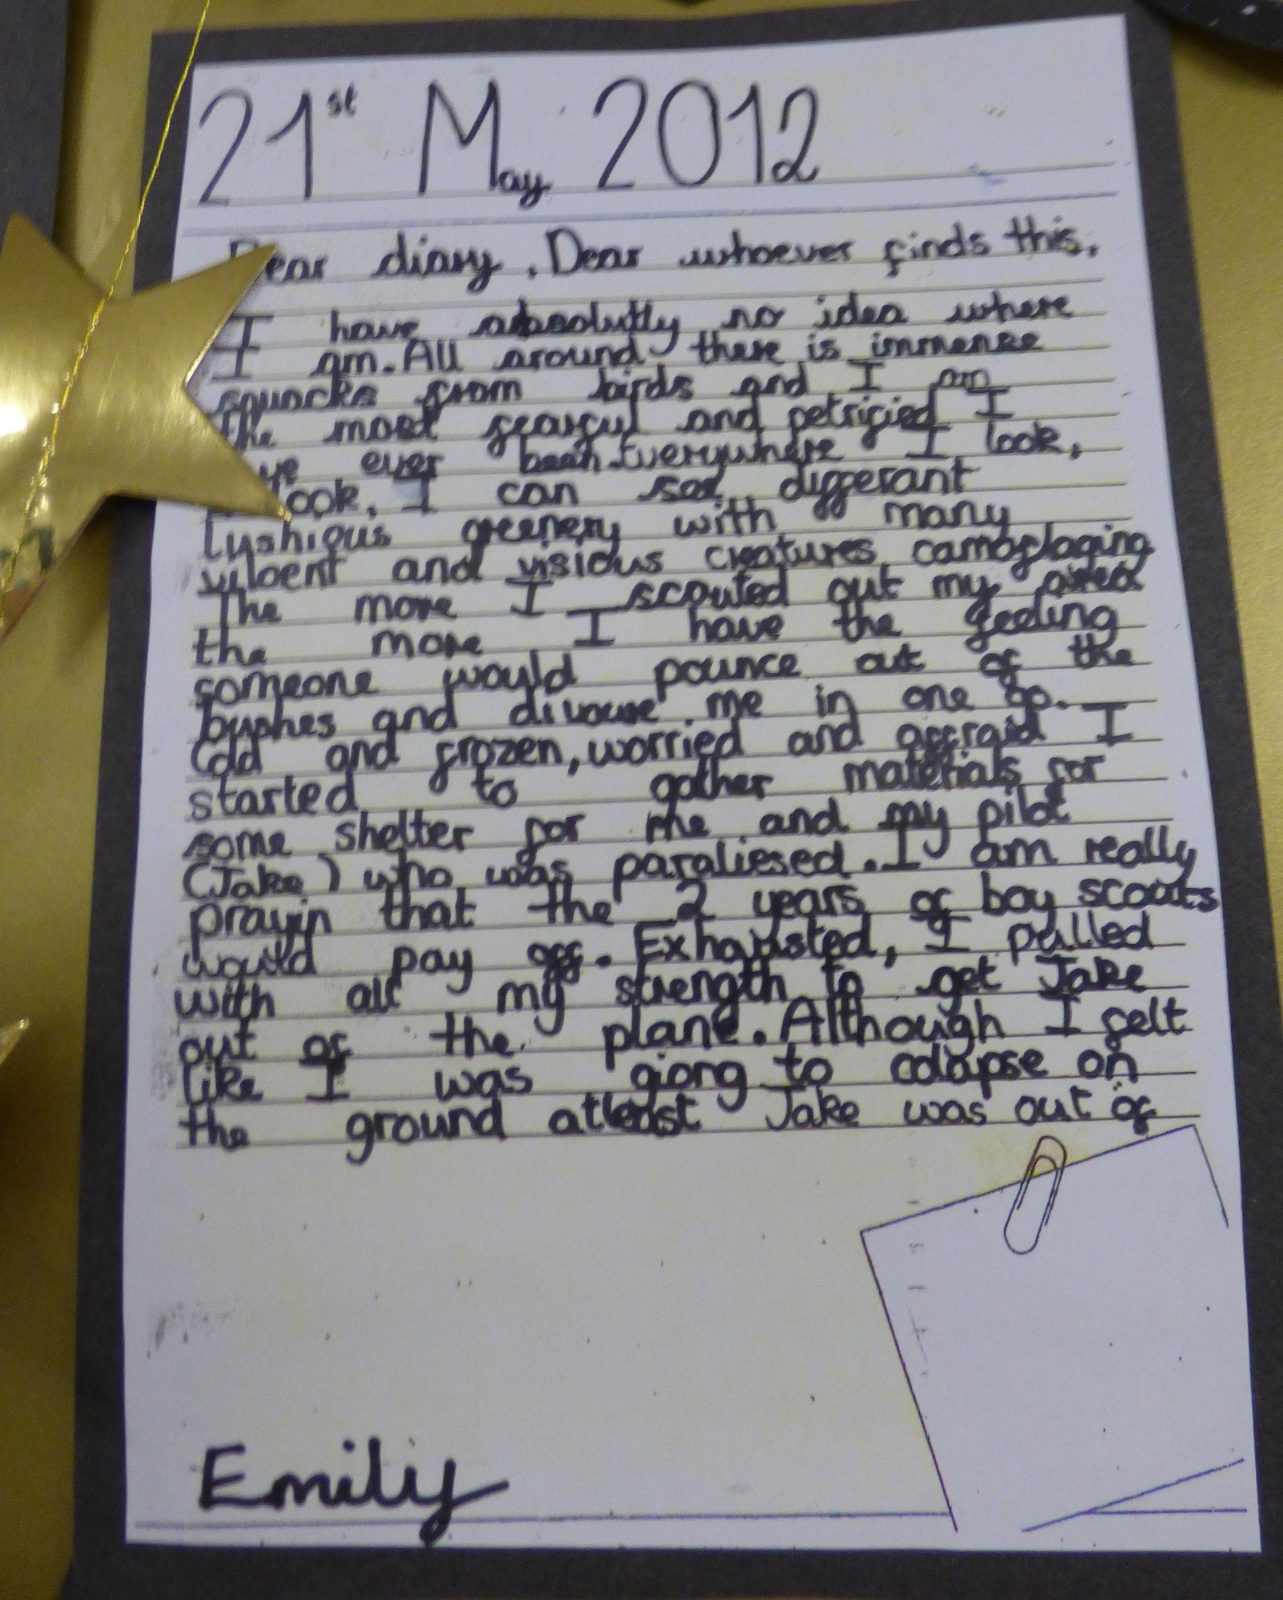 21st May 2012
Dear diary. Dear whoever finds this,
I have absolutly no idea where
I am. All around there is immense
squacks from birds and I am
the most fearful and petrified I
have ever been. Everywhere I look,
look, I can see differant
lushious greenery with many
viloent and visious creatures camoflaging
The more I scouted out my area
the more I have the feeling
someone would pounce out of the
bushes and divoure me in one go.
Cold and frozen, worried and affraid I
started to gather materials for
some shelter for me and my pilot
(Jake) who was paraliesed. I am really
prayin that the 2 years of boy scouts
would pay off. Exhausted, I pulled
with all my strength to get Jake
out of the plane. Although I felt
like I was giong to colapse on
the ground atleast Jake was out of
Emily